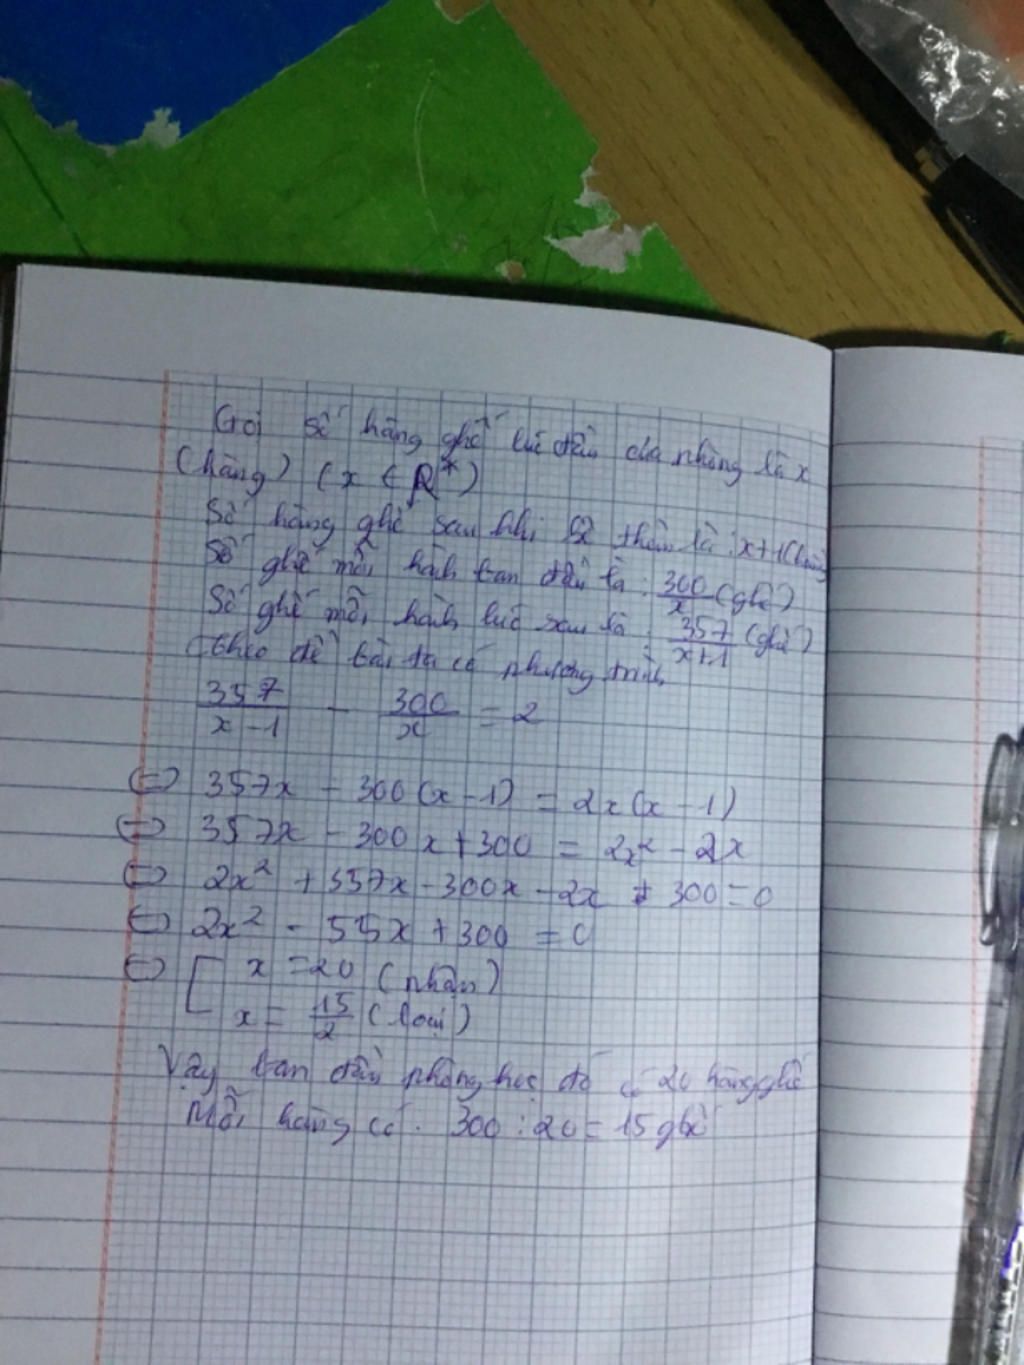 Gọi số hàng ghế lúc đầu của phòng là x
(hàng) (x ∈ R*)
Số hàng ghế sau khi thêm là : x+1 (hàng)
Số ghế mỗi hành ban đầu là : 300/x (ghế)
Số ghế mỗi hành lúc sau là : 357/x+1 (ghế)
theo đề bài ta có phương trình
357/x-1 - 300/x = 2
⇔ 357x - 300(x-1) = 2x(x-1)
⇔ 357x - 300x + 300 = 2x² - 2x
⇔ 2x² + 357x - 300x - 2x + 300 = 0
⇔ 2x² - 55x + 300 = 0
⇔ [ x = 20 (nhận)
x = 15/2 (loại)
Vậy ban đầu phòng học đó có 20 hàng ghế
Mỗi hàng có : 300 : 20 = 15 ghế